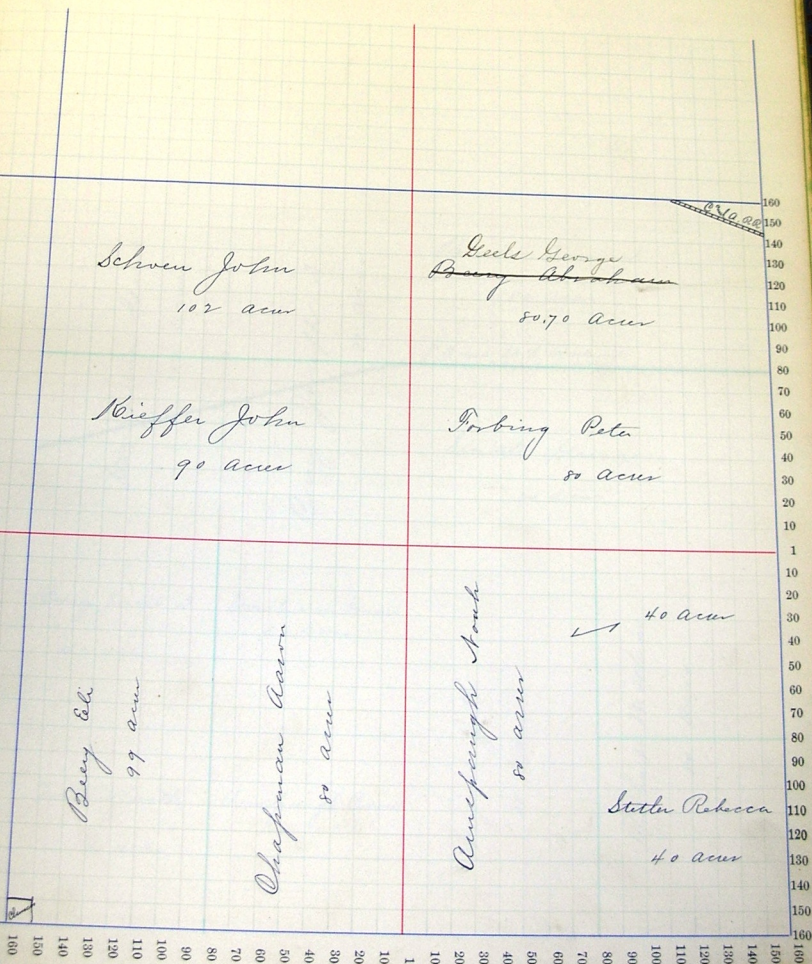 C & A. RR
Schoen John
102 acres
Geels George
Beery Abraham
80.70 acres
Kieffer John
90 acres
Forbing Peter
80 acres
Beery Eli
99 acres
Chapman Aaron
80 acres
Amspaugh Noah
80 acres
40 acres
Stetler Rebecca
40 acres
160
150
140
130
120
110
100
90
80
70
60
50
40
30
20
10
1
10
20
30
40
50
60
70
80
90
100
110
120
130
140
150
160
160 150 140 130 120 110 100 90 80 70 60 50 40 30 20 10 1 10 20 30 40 50 60 70 80 90 100 110 120 130 140 150 160